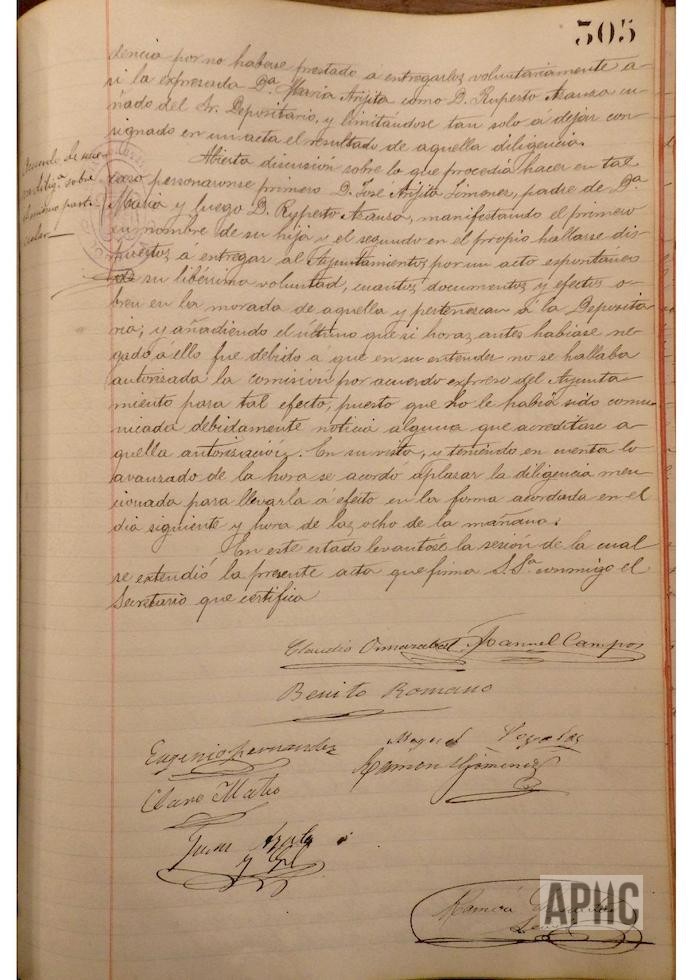 305
dencia por no haberse prestado á entregarlos voluntariamente a-
si la expresada Dª María Arijita como D. Ruperto Mausa cu-
ñado del Sr. Depositario, y limitándose tan solo a dejar con-
signado en un acta el resultado de aquella diligencia.
Abierta discusión sobre lo que procedía hacer en tal
caso personaronse primero D. José Arijita Jimenez, padre de Dª
María y luego D. Ruperto Mausa, manifestando el primero
en nombre de su hija y el segundo en el propio hallarse dis-
puestos a entregar al Ayuntamiento, por un acto espontáneo
de su libérrima voluntad, cuantos documentos y efectos o-
bren en la morada de aquella y pertenezcan á la Deposita
ria; y añadiendo el último que si horas antes habíase ne-
gado á ello fue debido a que en su entender no se hallaba
autorizada la comisión por acuerdo expreso del Ayunta-
miento para tal efecto, puesto que no le había sido comu-
nicada debidamente noticia alguna que acreditase a-
quella autorización. En su vista, y teniendo en cuenta lo
avanzado de la hora se acordó aplazar la diligencia men-
cionada para llevarla á efecto en la forma acordada en el
día siguiente y hora de las ocho de la mañana.
En este estado levantóse la sesión de la cual
se extendió la presente acta que firma S. Sª conmigo el
Secretario que certifica
Acuerdo de
sobre
el mismo parti-
cular
Claudio Manuel Campos
Benito Romano
Eugenio Fernandez
Miguel
Ramon Gimenez
Claro Mateo
Juan
y Gil
Ramón
APHC